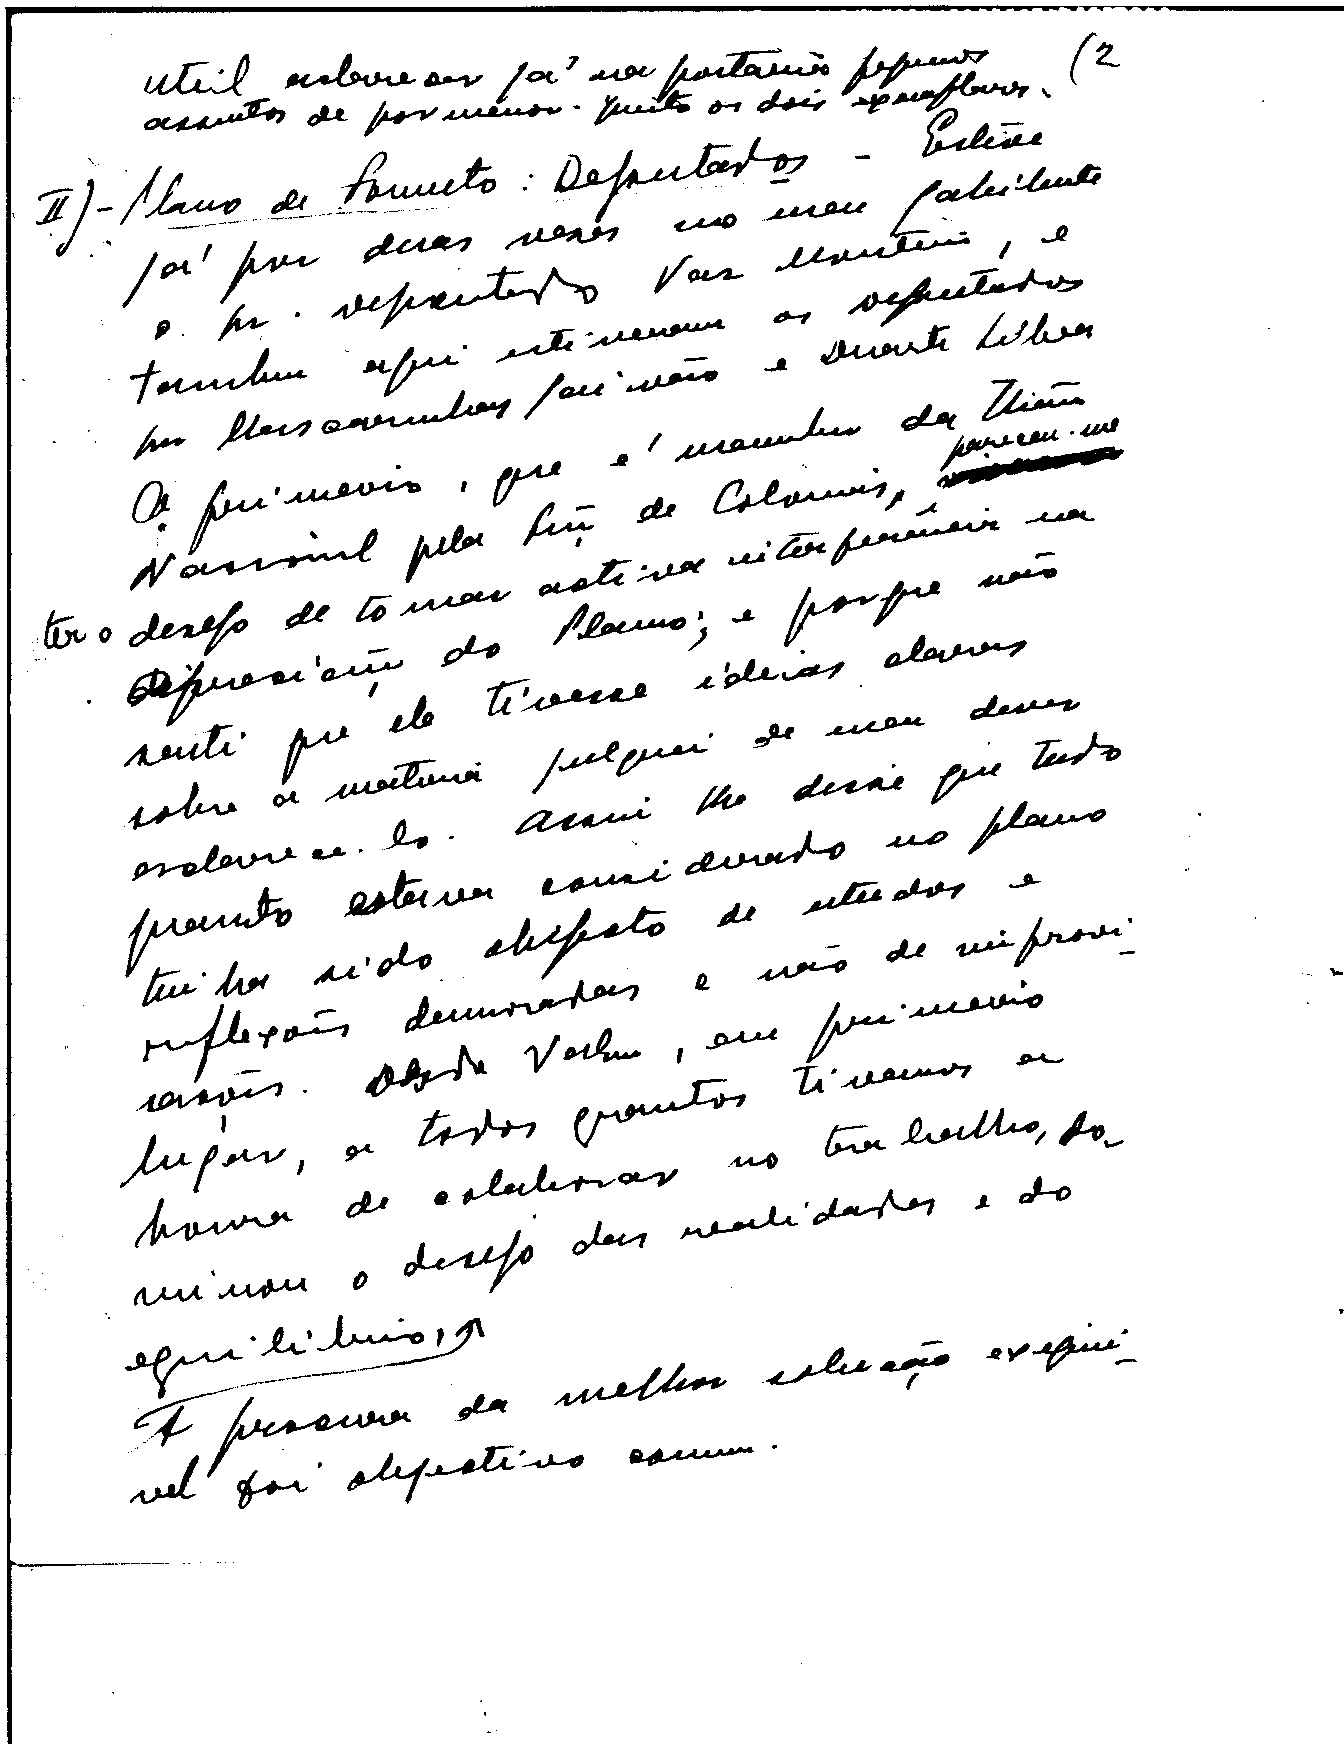 (2
util esclarecer já na portaria pequenos
assuntos de pormenor. Junto os dois exemplares.
II) - Plano de Fomento: Deputados - Esteve
já por duas vezes no meu gabinete
o sr. deputado Vaz Monteiro, e
tambem aqui estiveram os deputados
srs Mascarenhas Gaivão e Duarte Silva
O primeiro, que é membro da União
Nacional pela de Colonias, pareceu-me
ter o desejo de tomar activa interferência na
apreciação do Plano; e porque não
senti que ele tivesse ideias claras
sobre a materia julguei de meu dever
esclarece-lo. Assim lhe disse que tudo
quanto estava considerado no plano
tinha sido objecto de estudos e
reflexões demoradas e não de improvi-
sações. Desde V. , em primeiro
lugar, a todos quantos tivemos a
honra de colaborar no trabalho, do-
minou o desejo das realidades e do
equilibrio,
A procura da melhor solução exequi-
vel foi objectivo comum.